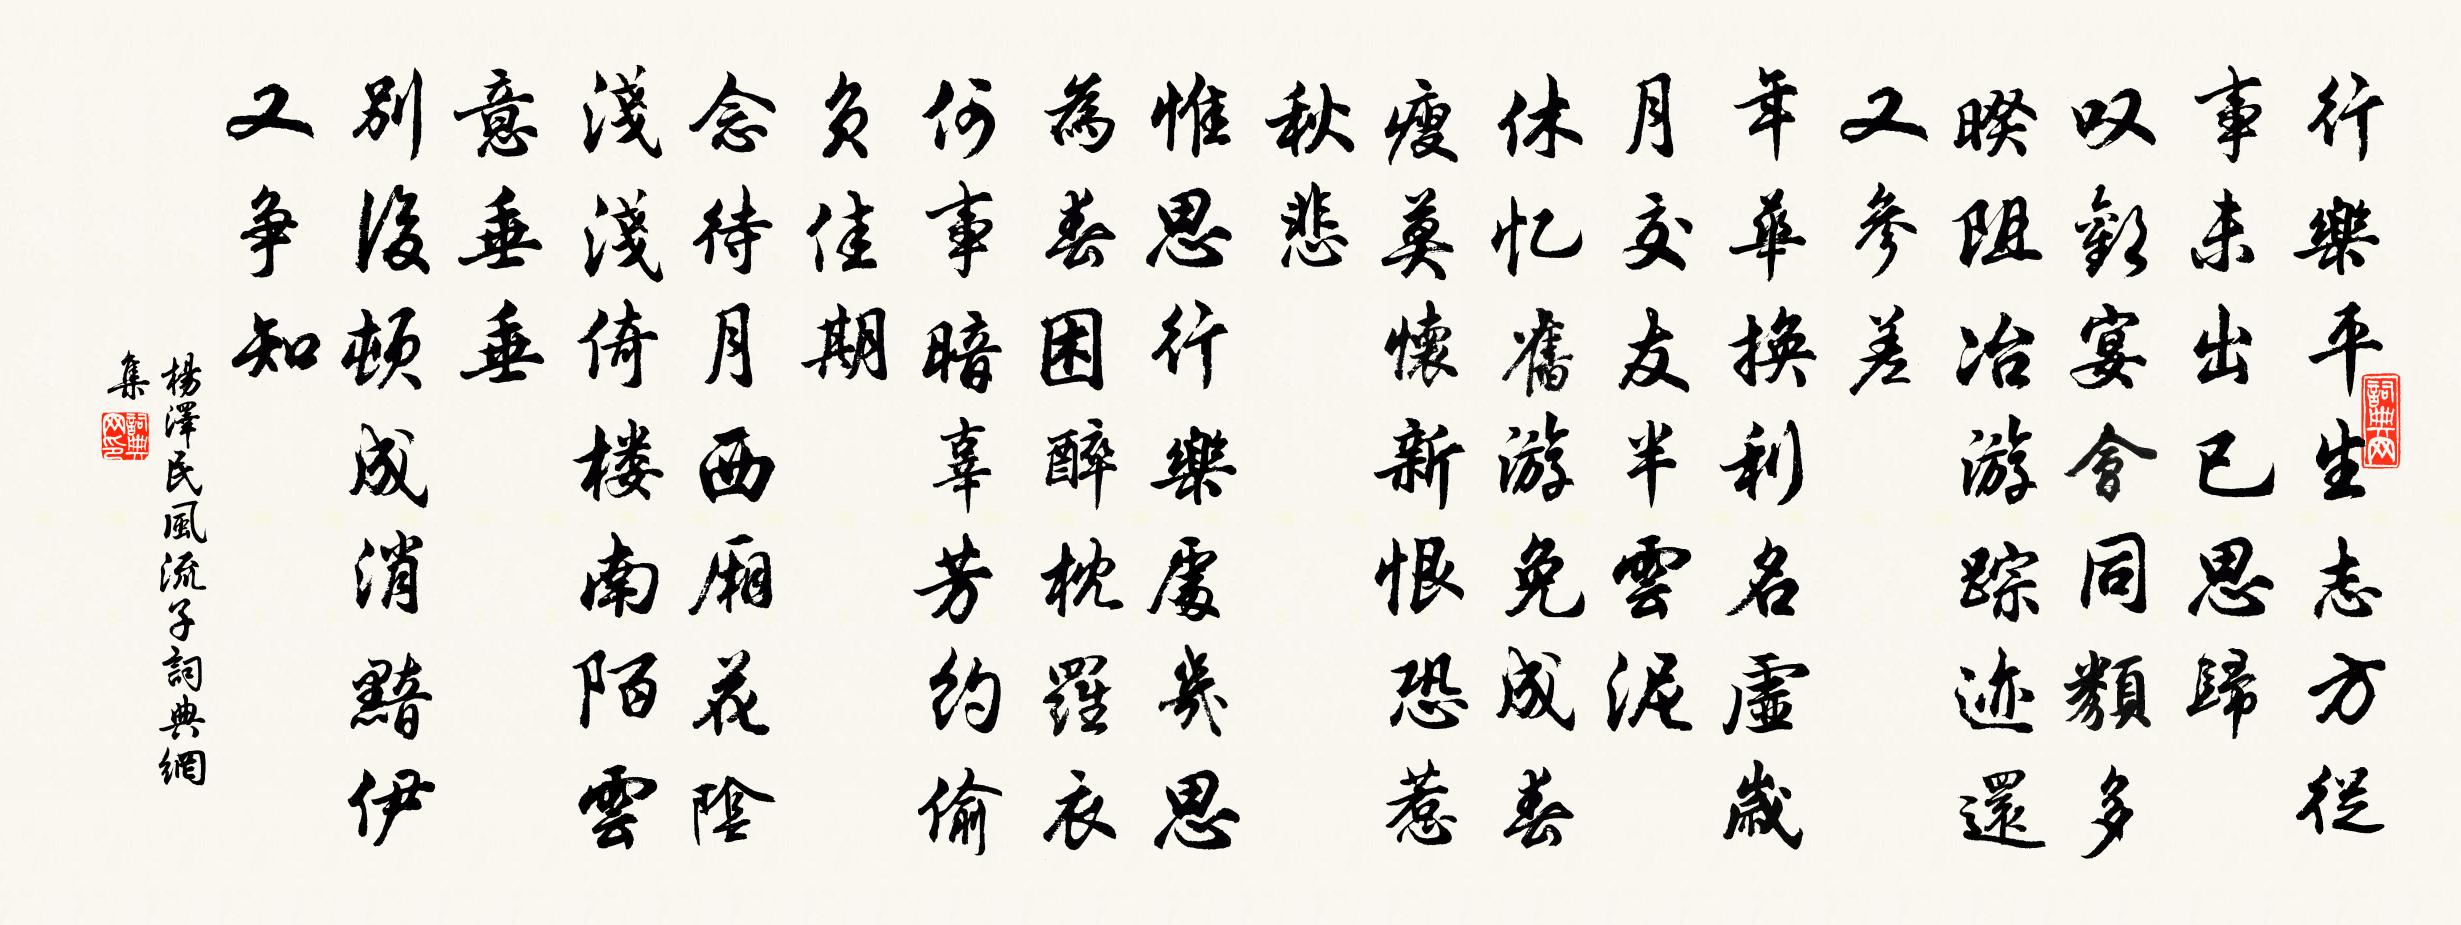 行樂平生志方從
事未出已思歸
叹歡宴會同類多
暌阻冶游踪迹還
又參差
年華換利名虛歲
月交友半雲泥
休忆舊游免成春
瘦莫懷新恨恐惹
秋悲
惟思行樂處幾思
為春困醉枕羅衣
何事暗辜芳約偷
負佳期
念待月西廂花陰
淺淺倚楼南陌雲
意垂垂
別後頓成消黯伊
又争知
楊澤民風流子詞典網
集
詞典网
詞典网印